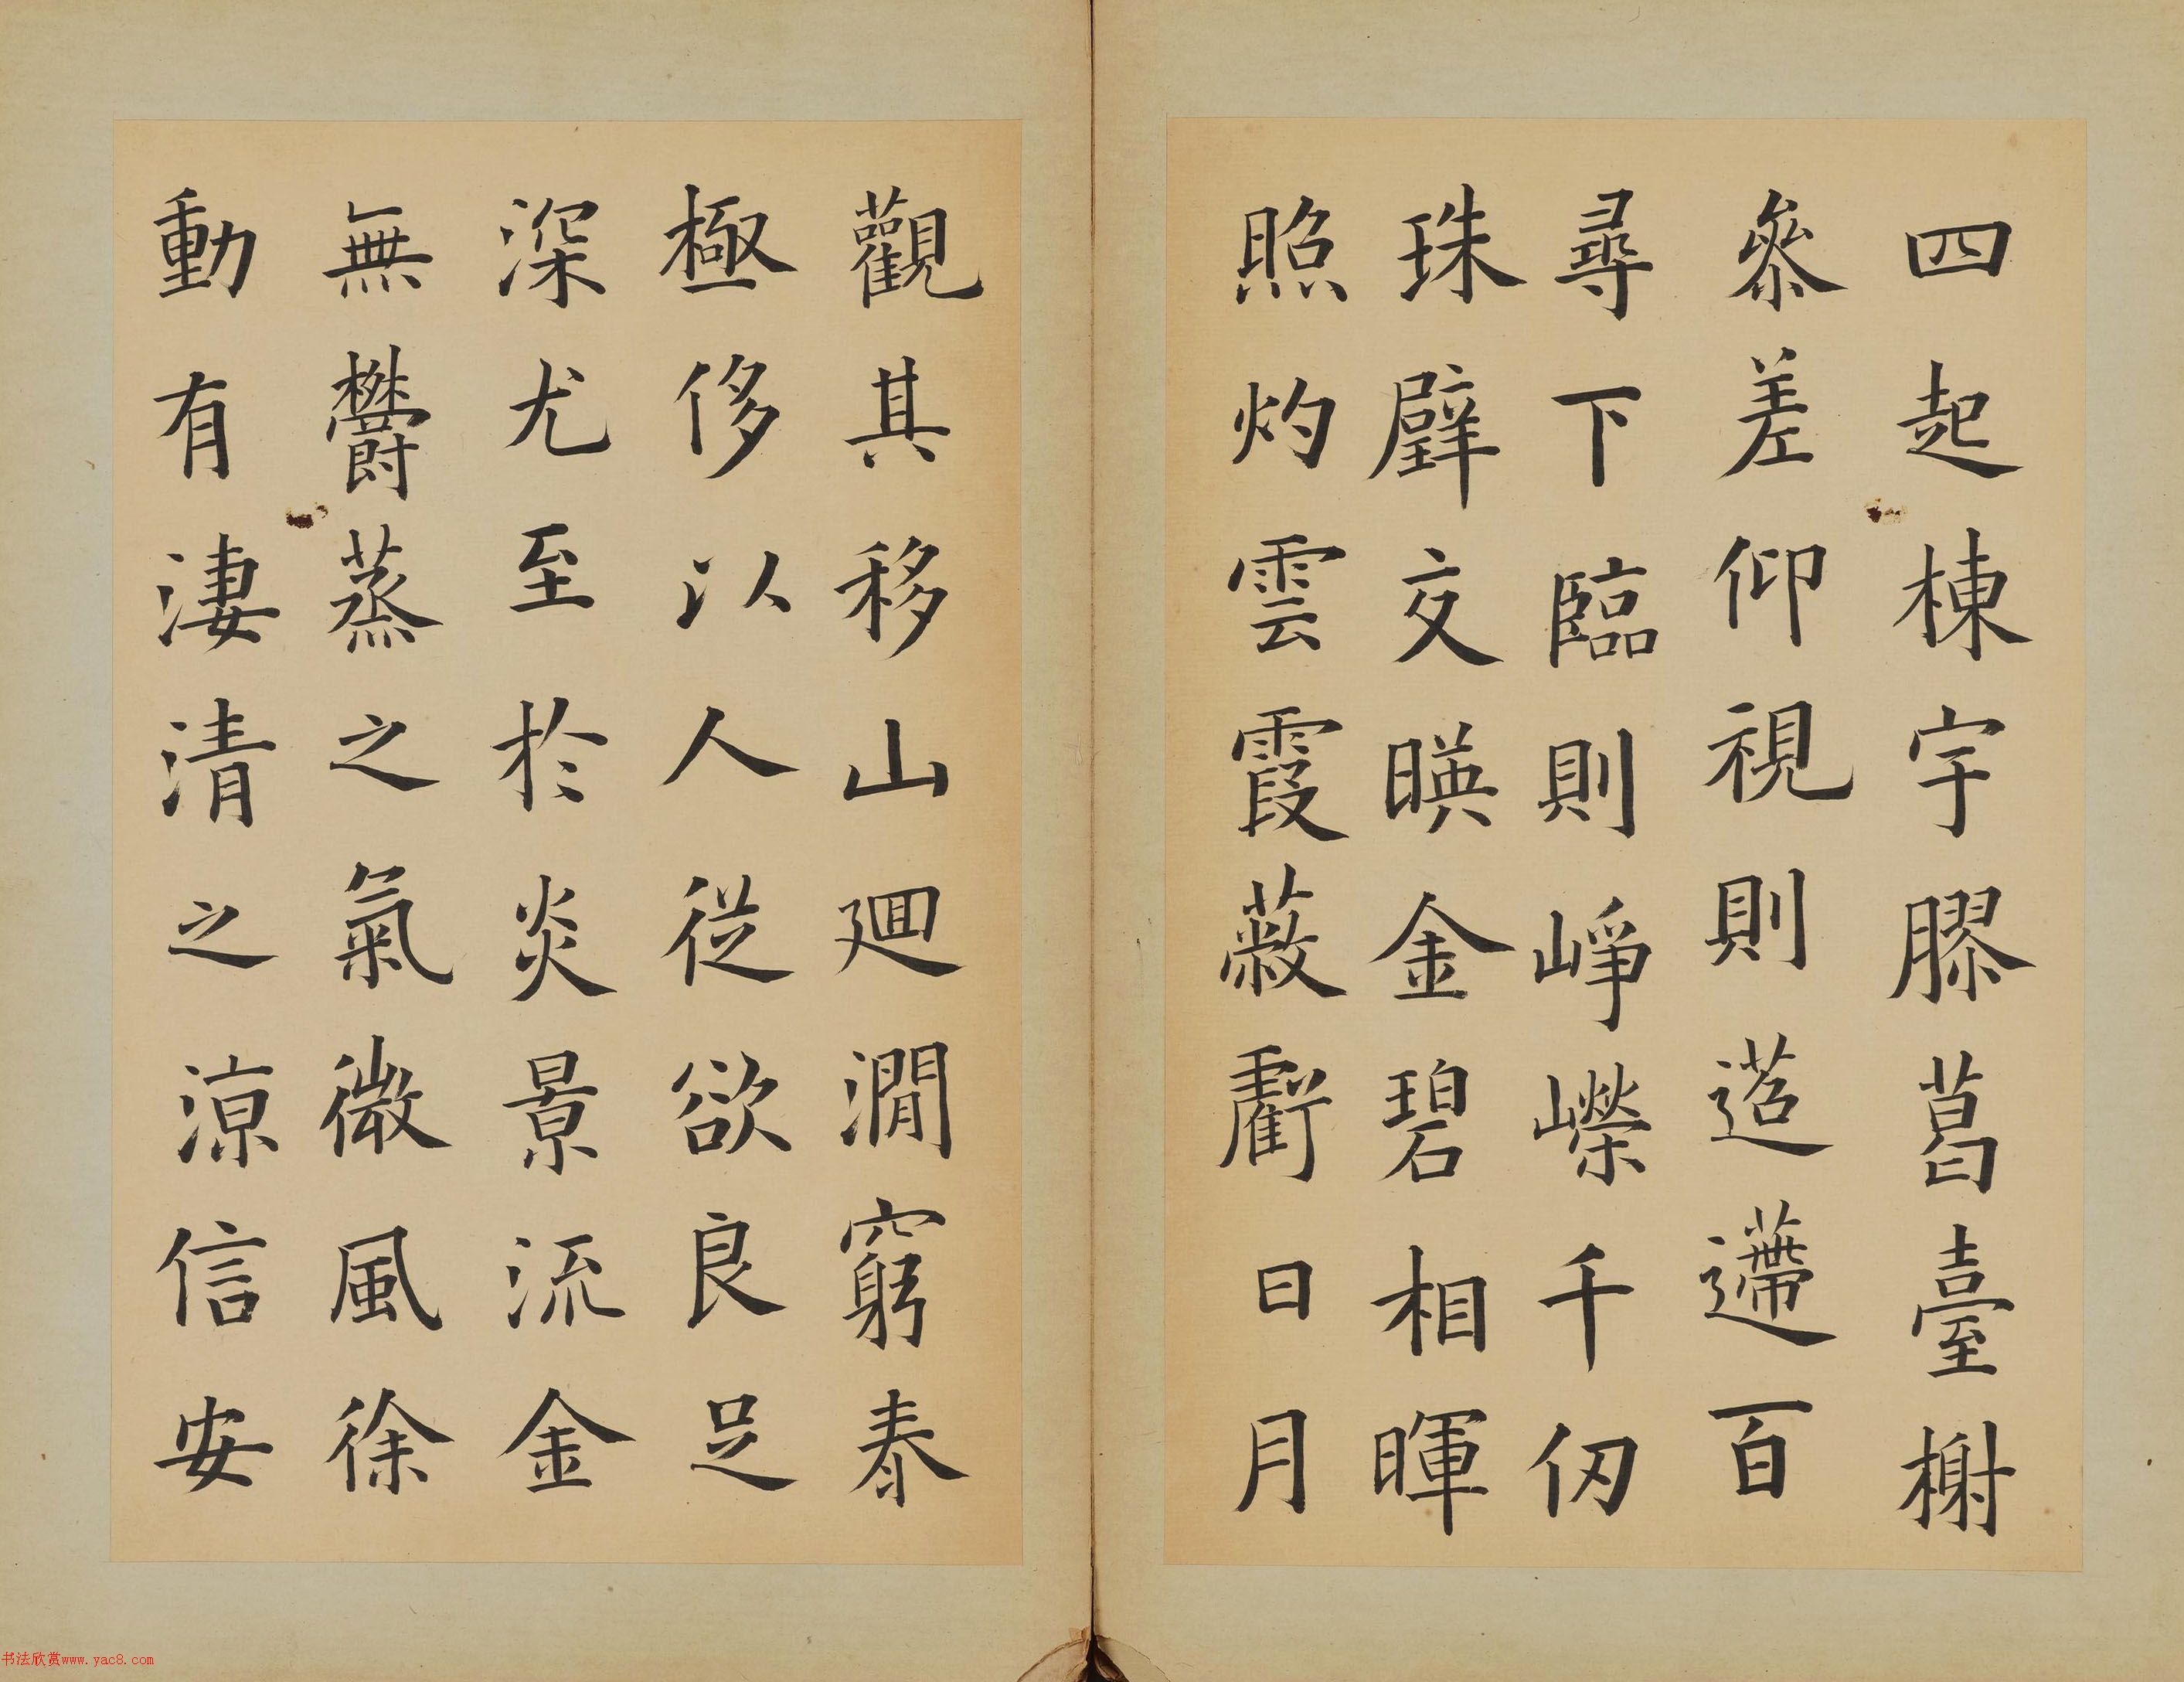 四起棟宇膠葛臺榭
參差仰視則迢遰百
尋下臨則崢嶸千仞
珠璧交暎金碧相暉
照灼雲霞蔽虧日月
觀其移山廻澗窮泰
極侈以人從欲良足
深尤至於炎景流金
無鬱蒸之氣微風徐
動有淒清之涼信安
书法欣赏www.yac8.com